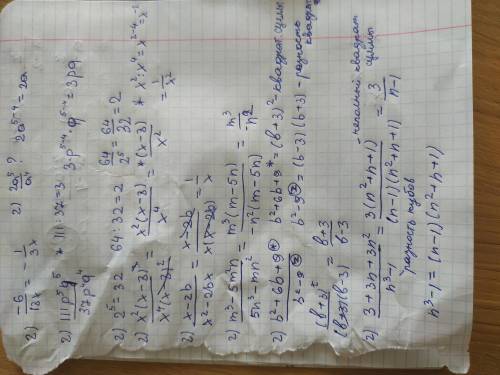 2) -6/18x = -1/3x   2) 2a⁵/a⁴ ?   2a⁵⁻⁴ = 2a
2) 111p⁵q⁵/37p⁴q⁴   * 111:37=3   3·p⁵⁻⁴·q⁵⁻⁴=3pq
2) 2⁵=32   64:32=2   64/2⁵ = 64/32 = 2
2) x²(x-3)³/x⁴(x-3)² = x²(x-3)/x⁴ = *(x-3)/x²   * x²:x⁴=x²⁻⁴=x⁻²
= 1/x²
2) x-2b/x²-2bx = x-2b/x(x-2b) = 1/x
2) m⁴-5m³n/5n³-mn² = m³(m-5n)/-n²(m-5n) = m³/-n²
2) b²+6b+9*/b²-9   b²+6b+9*=(b+3)² квадрат суммы
b²-9=(b-3)(b+3) - разность квадратов
(b+3)²/(b+3)(b-3) = b+3/b-3
2) 3+3n+3n²/n³-1 = 3(n²+n+1)/(n-1)(n²+n+1) - неполный квадрат суммы = 3/n-1
разность кубов
n³-1=(n-1)(n²+n+1)